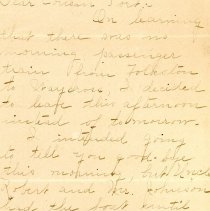 Dear Cousin Dora,
On learning
that there was no
morning passenger
train from Folkston
to Waycross, I decided
to leave this afternoon
instead of tomorrow.
I intended going
to tell you good-bye
this morning, but Uncle
Robert and Mr. Johnson
had the boat until